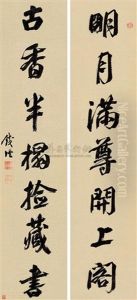 明月滿尊開上閣
古香半榻撿藏書